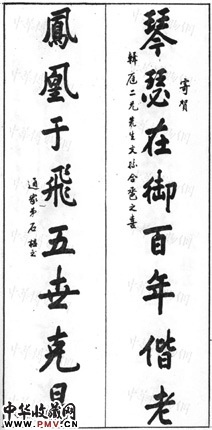 寄賀
琴瑟在御百年偕老
二兄先生文孫合巹之喜
鳳凰于飛五世克昌
通家弟石
中华收藏网
www.PMV.CN